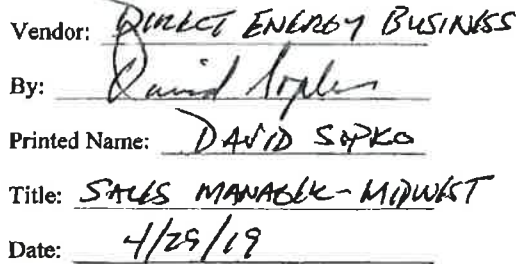 Vendor: DIRECT ENERGY BUSINESS
By: David Sopko
Printed Name: DAVID SOPKO
Title: SALES MANAGER - MIDWEST
Date: 4/29/19